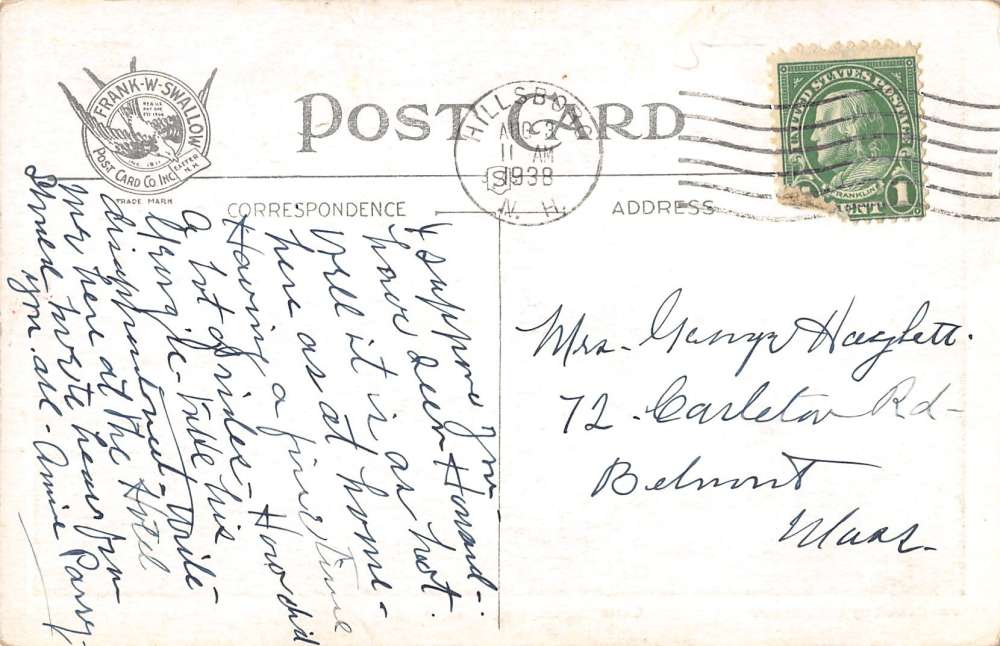 FRANK-W-SWALLOW
POST CARD CO INC
EXETER
N.H.
TRADE MARK
POST CARD
HILLSBORO
AUG 3
11 AM
1938
N. H.
UNITED STATES POSTAGE
FRANKLIN
1
CORRESPONDENCE
ADDRESS
I suppose you
have seen Howard-
Well it is as hot
here as at home-
Having a fine time
a lot of rides- How did
George like his
disappointment- Write
me here at the Hotel
Loved to hear from
you all- Annie
Mrs- George Hazlett.
72 Carleton Rd-
Belmont
Mass-